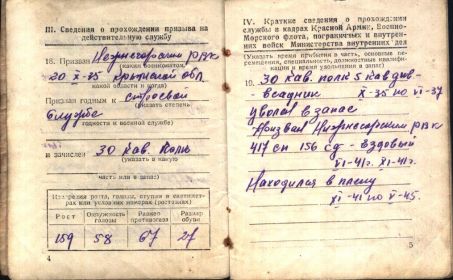 III. Сведения о прохождении призыва на
действительную службу
18. Призван Нижнегорским РВК
каким военкоматом,
20 X-35 Крымской обл.
какой области и когда)
Призван годным к строевой
(указать степень
службе
годности к военной службе)
и зачислен 30 кав. полк
(указать в какую
часть или в запас)
Измерения роста, головы, ступни в сантимет-
рах или условных номерах (ростовках)
Рост Окружность головы Размер противогаза Размер обуви
159 58 67 27
4
IV. Краткие сведения о прохождении
службы в кадрах Красной Армии, Военно-
Морского флота, пограничных и внутрен-
них войск Министерства внутренних дел
(Указать время прибытия в часть, основные пе-
ремещения, специальность, должностные квалифи-
кации и время увольнения в запас)
19. 30 кав. полк 5 кав див-
- всадник X-35 по VI-37
уволен в запас
Призван Нижнегорским РВК
417 сп 156 сд - ездовый
VI-41г. XI-41г.
Находился в плену
XI-41 по V-45.
5